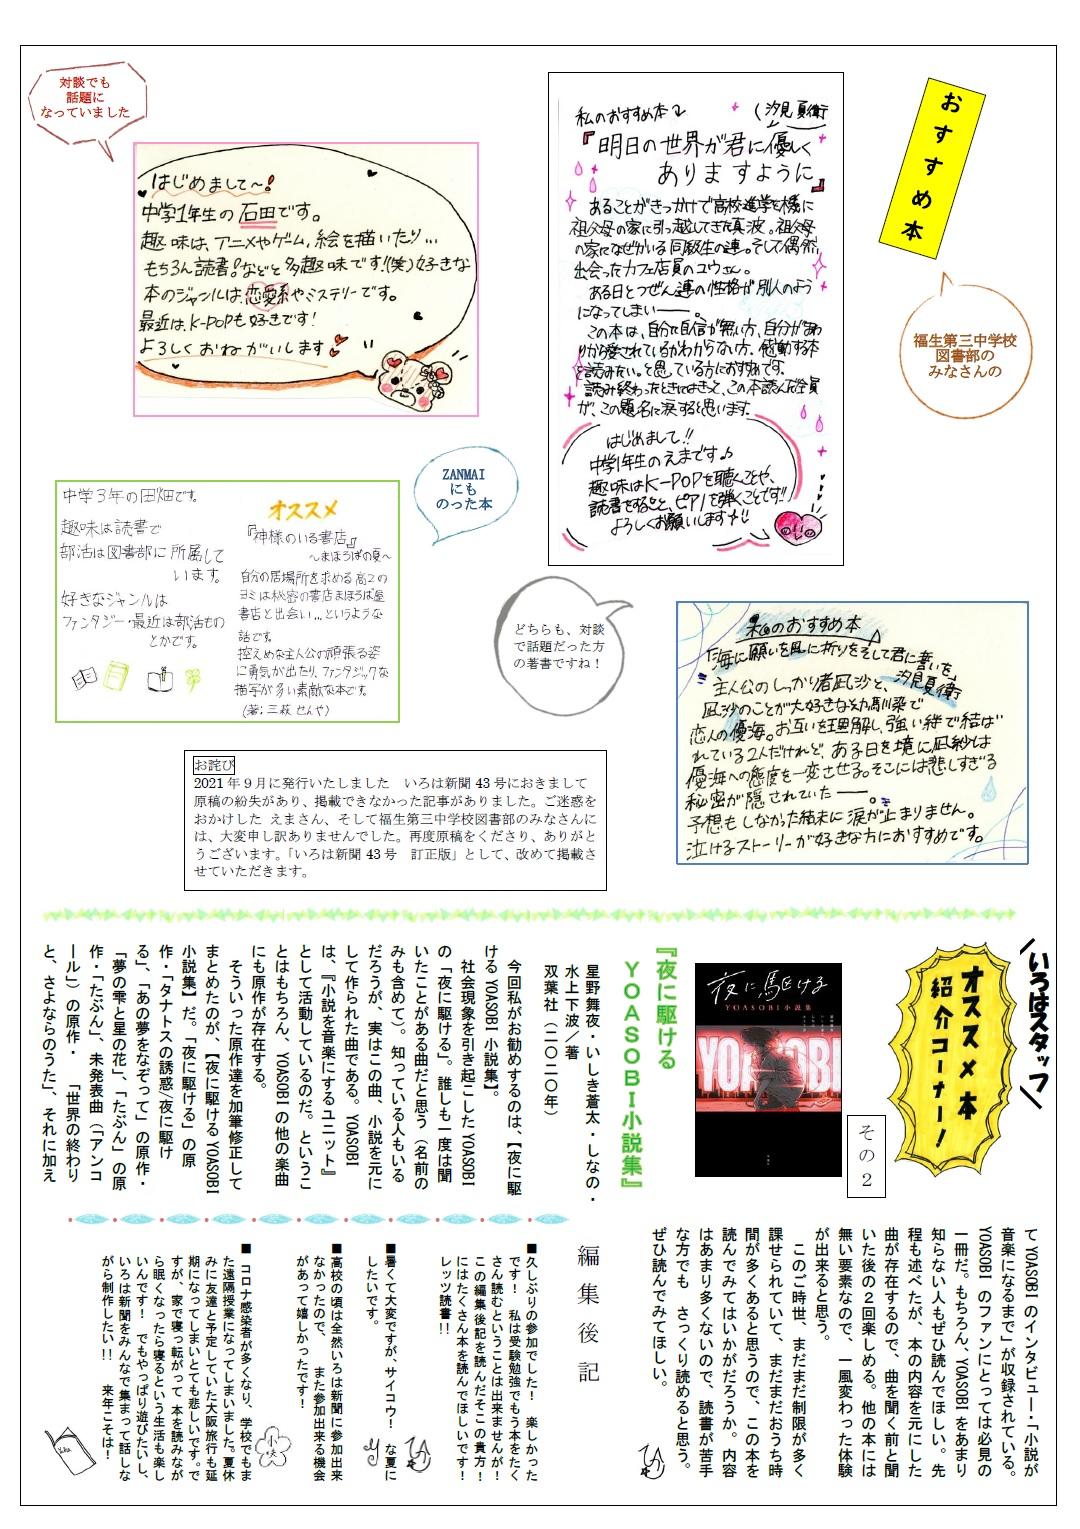 おすすめ本
福生第三中学校
図書部の
みなさんの
私のおすすめ本
(汐見夏衛
『明日の世界が君に優しく
ありますように』
あることがきっかけで高校進学を機に
祖父母の家に引っ越してきた真波。祖父母
の家になぜかいる同級生の漣。そして偶然
出会ったカフェ店員のユウさん。
ある日とつぜん漣の性格が別人のよう
になってしまい――。
この本は、自分に自信が無い方、自分がまわ
りから愛されているかわからない方、感動する本
を読みたい。と思っている方におすすめです。
読み終わったときにはきっと、この本読んだ全員
が、この題名に涙すると思います。
はじめまして!!
中学1年生のえまです♪
趣味はK-POPを聴くことや、
読書をすること、ピアノを弾くことです!!
よろしくお願いします!!
対談でも
話題に
なっていました
はじめまして〜!
中学1年生の石田です。
趣味は、アニメやゲーム,絵を描いたり...
もちろん読書!などと多趣味です!(笑)好きな
本のジャンルは、恋愛系やミステリーです。
最近は、K-POPも好きです!
よろしくおねがいします
ZANMAI
にも
のった本
中学3年の田畑です。
趣味は読書で
部活は図書部に所属して
います。
好きなジャンルは
ファンタジー・最近は部活もの
とかです。
オススメ
『神様のいる書店』
〜まほろばの夏〜
自分の居場所を求める高2の
ヨミは秘密の書店まほろば屋
書店と出会い...というような
話です。
控えめな主人公の頑張る姿
に勇気が出たり,ファンタジックな
描写が多い素敵な本です。
(著:三萩せんや)
どちらも、対談
で話題だった方
の著書ですね!
私のおすすめ本
「海に願いを風に祈りをそして君に誓いを」
汐見夏衛
主人公のしっかり者凪沙と、
凪沙のことが大好きな幼馴染で
恋人の優海。お互いを理解し、強い絆で結ば
れている2人だけれど、ある日を境に凪沙は
優海への態度を一変させる。そこには悲しすぎる
秘密が隠されていた――。
予想もしなかった結末に涙が止まりません。
泣けるストーリーが好きな方におすすめです。
お詫び
2021年9月に発行いたしました いろは新聞43号におきまして
原稿の紛失があり、掲載できなかった記事がありました。ご迷惑を
おかけした えまさん、そして福生第三中学校図書部のみなさんに
は、大変申し訳ありませんでした。再度原稿をくださり、ありがと
うございます。「いろは新聞43号 訂正版」として、改めて掲載さ
せていただきます。
いろはスタッフ
オススメ本
紹介コーナー!
その2
夜に駆ける
YOASOBI小説集
YOASOBI
『夜に駆ける
YOASOBI小説集』
星野舞夜・いしき蒼太・しなの・
水上下波/著
双葉社(二〇二〇年)
今回私がお勧めするのは、【夜に駆
ける YOASOBI 小説集】。
社会現象を引き起こした YOASOBI
の「夜に駆ける」。誰しも一度は聞
いたことがある曲だと思う(名前の
みも含めて)。知っている人もいる
だろうが、実はこの曲、小説を元に
して作られた曲である。YOASOBI
は、『小説を音楽にするユニット』
として活動しているのだ。というこ
とはもちろん、YOASOBI の他の楽曲
にも原作が存在する。
そういった原作達を加筆修正して
まとめたのが、【夜に駆ける YOASOBI
小説集】だ。「夜に駆ける」の原
作・「タナトスの誘惑/夜に駆け
る」、「あの夢をなぞって」の原作・
「夢の雫と星の花」、「たぶん」の原
作・「たぶん」、未発表曲(「アンコ
ール」)の原作・ 「世界の終わり
と、さよならのうた」、それに加え
て YOASOBI のインタビュー・「小説が
音楽になるまで」が収録されている。
YOASOBI のファンにとっては必見の
一冊だ。もちろん、YOASOBI をあまり
知らない人もぜひ読んでほしい。先
程も述べたが、本の内容を元にした
曲が存在するので、曲を聞く前と聞
いた後の2回楽しめる。他の本には
無い要素なので、一風変わった体験
が出来ると思う。
このご時世、まだまだ制限が多く
課せられていて、まだまだおうち時
間が多くあると思うので、この本を
読んでみてはいかがだろうか。内容
はあまり多くないので、読書が苦手
な方でも さっくり読めると思う。
ぜひ読んでみてほしい。
編集後記
■久しぶりの参加でした! 楽しかった
です! 私は受験勉強でもう本をたく
さん読むということは出来ませんが!
この編集後記を読んだそこの貴方!
にはたくさん本を読んでほしいです!
レッツ読書!!
■暑くて大変ですが、サイコウ! な夏に
したいです。
■高校の頃は全然いろは新聞に参加出来
なかったので、 また参加出来る機会
があって嬉しかったです!
■コロナ感染者が多くなり、学校でもま
た遠隔授業になってしまいました。夏休
みに友達と予定していた大阪旅行も延
期になってしまいとても悲しいです。で
すが、家で寝っ転がって本を読みなが
ら眠くなったら寝るという生活も楽し
いんです! でもやっぱり遊びたいし、
いろは新聞をみんなで集まって話しな
がら制作したい!! 来年こそは!